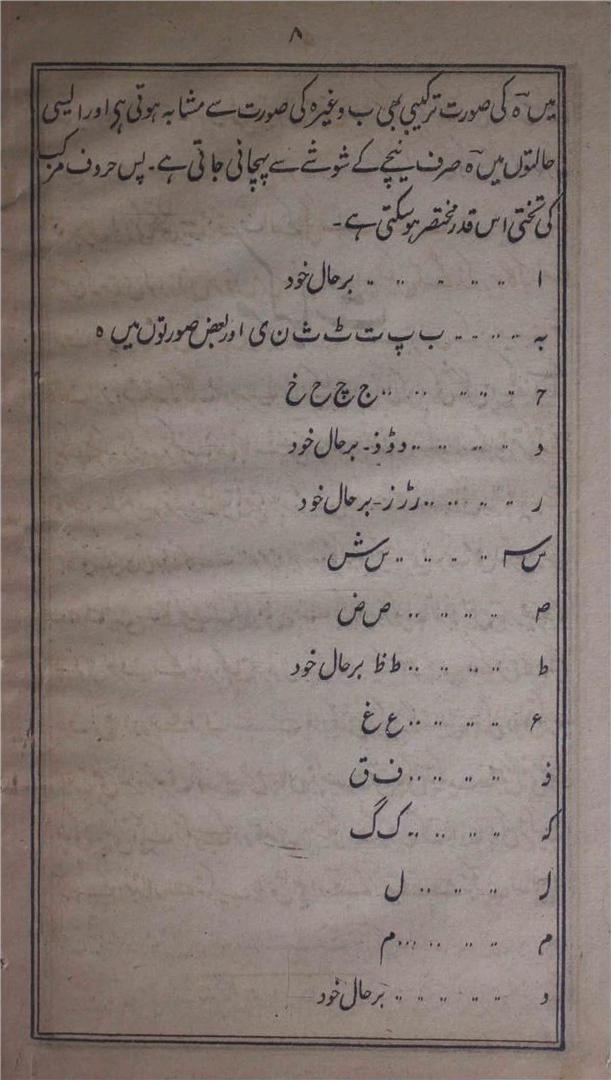 ۸
میں ہ کی صورت ترکیبی بھی ب وغیرہ کی صورت سے مشابہ ہوتی ہی اور ایسی
حالتوں میں ہ صرف نیچے کے شوشے سے پہچانی جاتی ہے۔ پس حروف مرکب
کی تختی اس قدر مختصر ہوسکتی ہے۔
ا ،، ،، ،، ،، ،، برحال خود
بہ ،، ،، ،، ب پ ت ٹ ث ن ی اور بعض صورتوں میں ہ
ح ،، ،، ،، ،، ج چ ح خ
د ،، ،، ،، ،، د ڈ ذ۔ برحال خود
ر ،، ،، ،، ،، ر ڑ ز۔ برحال خود
س سـ ،، ،، ،، ،، س ش
صـ ،، ،، ،، ،، ص ض
ط ،، ،، ،، ،، ط ظ برحال خود
ء ،، ،، ،، ،، ع غ
فـ ،، ،، ،، ،، ف ق
کـ ،، ،، ،، ،، ک گ
لـ ،، ،، ،، ،، ل
مـ ،، ،، ،، ،، م
و ،، ،، ،، ،، ،، برحال خود